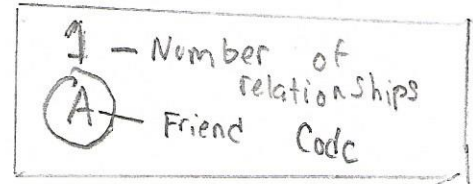 1 - Number of
relationships
A - Friend Code